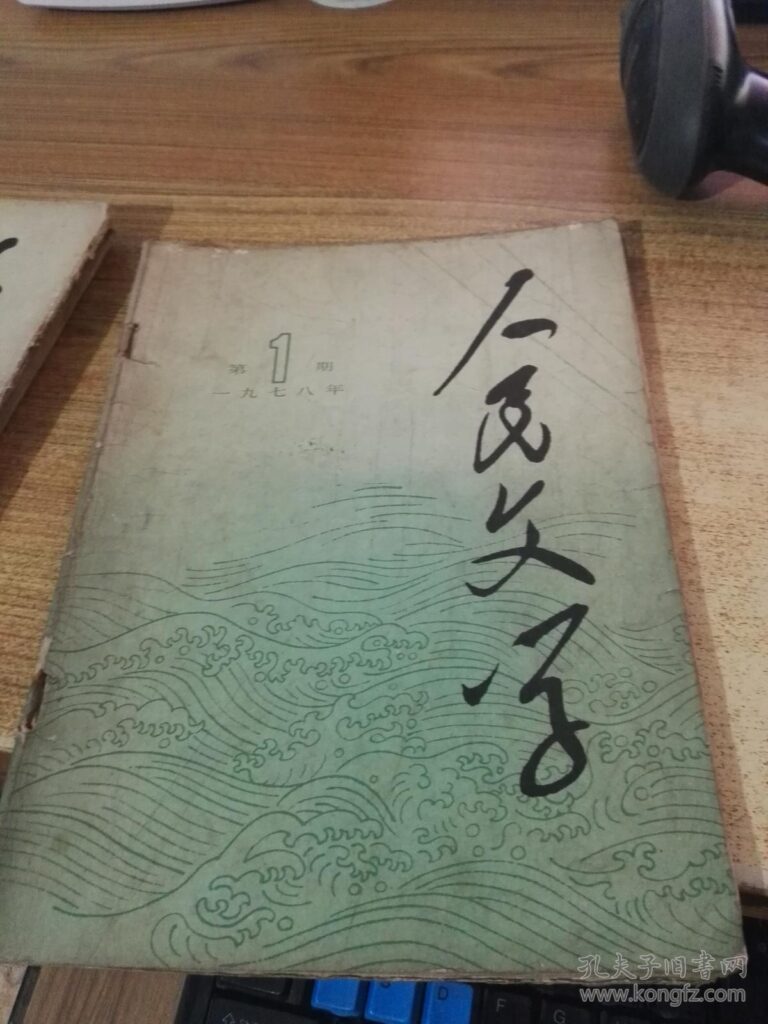 人民文学
第1期
一九七八年
D
F
G
孔夫子旧书网
www.kongfz.com